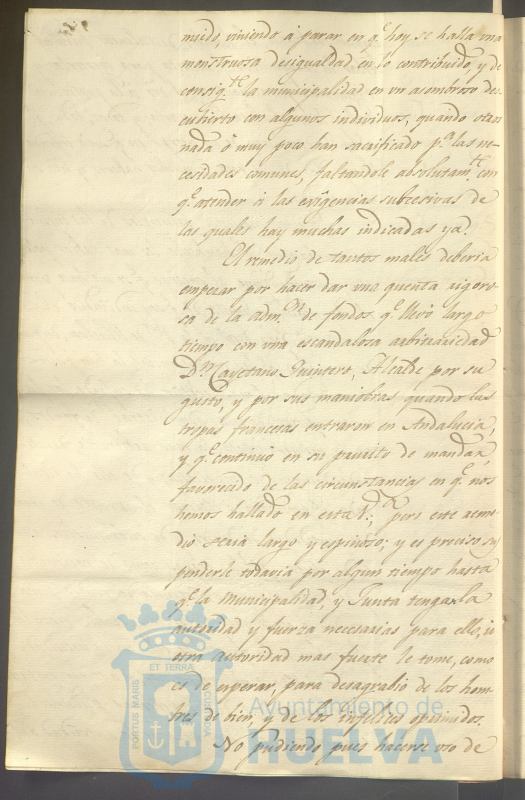 mido, viniendo á parar en q.e hoy se halla una
monstruosa desigualdad en lo contribuido, y de
consig.te la municipalidad en un asombroso des
cubierto con algunos individuos, quando otros
nada ó muy poco han sacrificado p.a las ne-
cesidades comunes, faltandole absolutam.te con
q.e atender á las exigencias subcesivas de
las quales hay muchas indicadas ya.
El remedio de tantos males deberia
empezar por hacer dar una quenta rigoro-
sa de la adm.on de fondos q.e llevó largo
tiempo con una escandalosa arbitrariedad
D.n Cayetano Quintero, Alcalde por su
gusto, y por sus maniobras quando las
tropas francesas entraron en Andalucia,
y q.e continuó en su prurito de mandar
favorecido de las circunstancias en q.e nos
hemos hallado en esta V.; pero este reme
dio seria largo y espinoso; y es preciso sus
penderle todavia por algun tiempo hasta
q.e la Municipalidad, y Junta tengan la
autoridad y fuerza necesarias para ello, ú
otra autoridad mas fuerte le tome, como
es de esperar, para desagrabio de los hom
bres de bien, y de los infelices oprimidos.
No pudiendo pues hacerse uso de
PORTUS MARIS
ET TERRAE
CUSTODIA
Ayuntamiento de
HUELVA